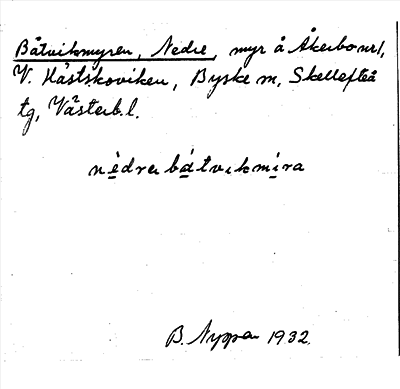 Båtvikmyren, Nedre, myr å Åkerbo nr 1,
V. Hästskoviken, Byske sn, Skellefteå
tg, Västerb. l.
nèdrε bátvıkmira
B. Nyman 1932.